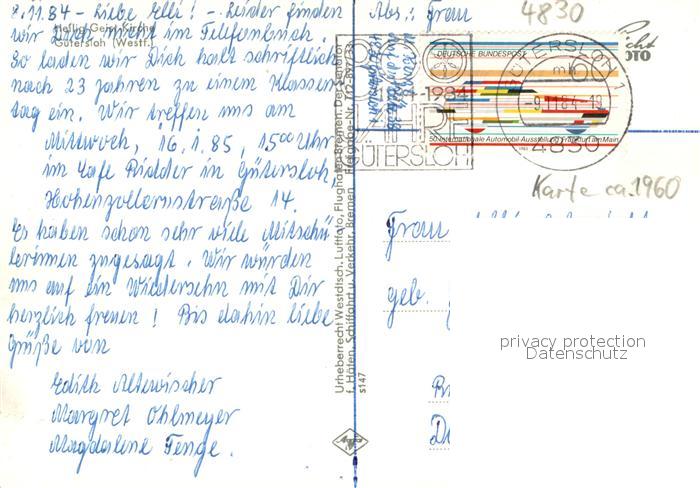 8.11.84 - Liebe Elli! - Leider finden
wir Dich nicht im Telefonbuch.
So laden wir Dich halt schriftlich
nach 23 Jahren zu einem Klassen-
tag ein. Wir treffen uns am
Mittwoch, 16.1.85, 15.00 Uhr
im Cafe Ridder in Gütersloh,
Hohenzollernstraße 14.
Es haben schon sehr viele Mitschü-
lerinnen zugesagt. Wir würden
uns auf ein Wiedersehn mit Dir
herzlich freuen! Bis dahin liebe
Grüße von
Edith Altewischer
Margret Ohlmeyer
Magdalene Tenge.
Gütersloh (Westf.)
Urheberrecht Westdtsch. Luftfoto, Flughafen Bremen. Der Senator
f. Häfen, Schiffahrt u. Verkehr, Bremen
s147
Agfa
Abs.: Frau
4830
OTO
DEUTSCHE BUNDESPOST
60
50. Internationale Automobil-Ausstellung Frankfurt am Main
1984
GÜTERSLOH
GÜTERSLOH 1
4830
Karte ca. 1960
Frau
geb.
privacy protection
Datenschutz